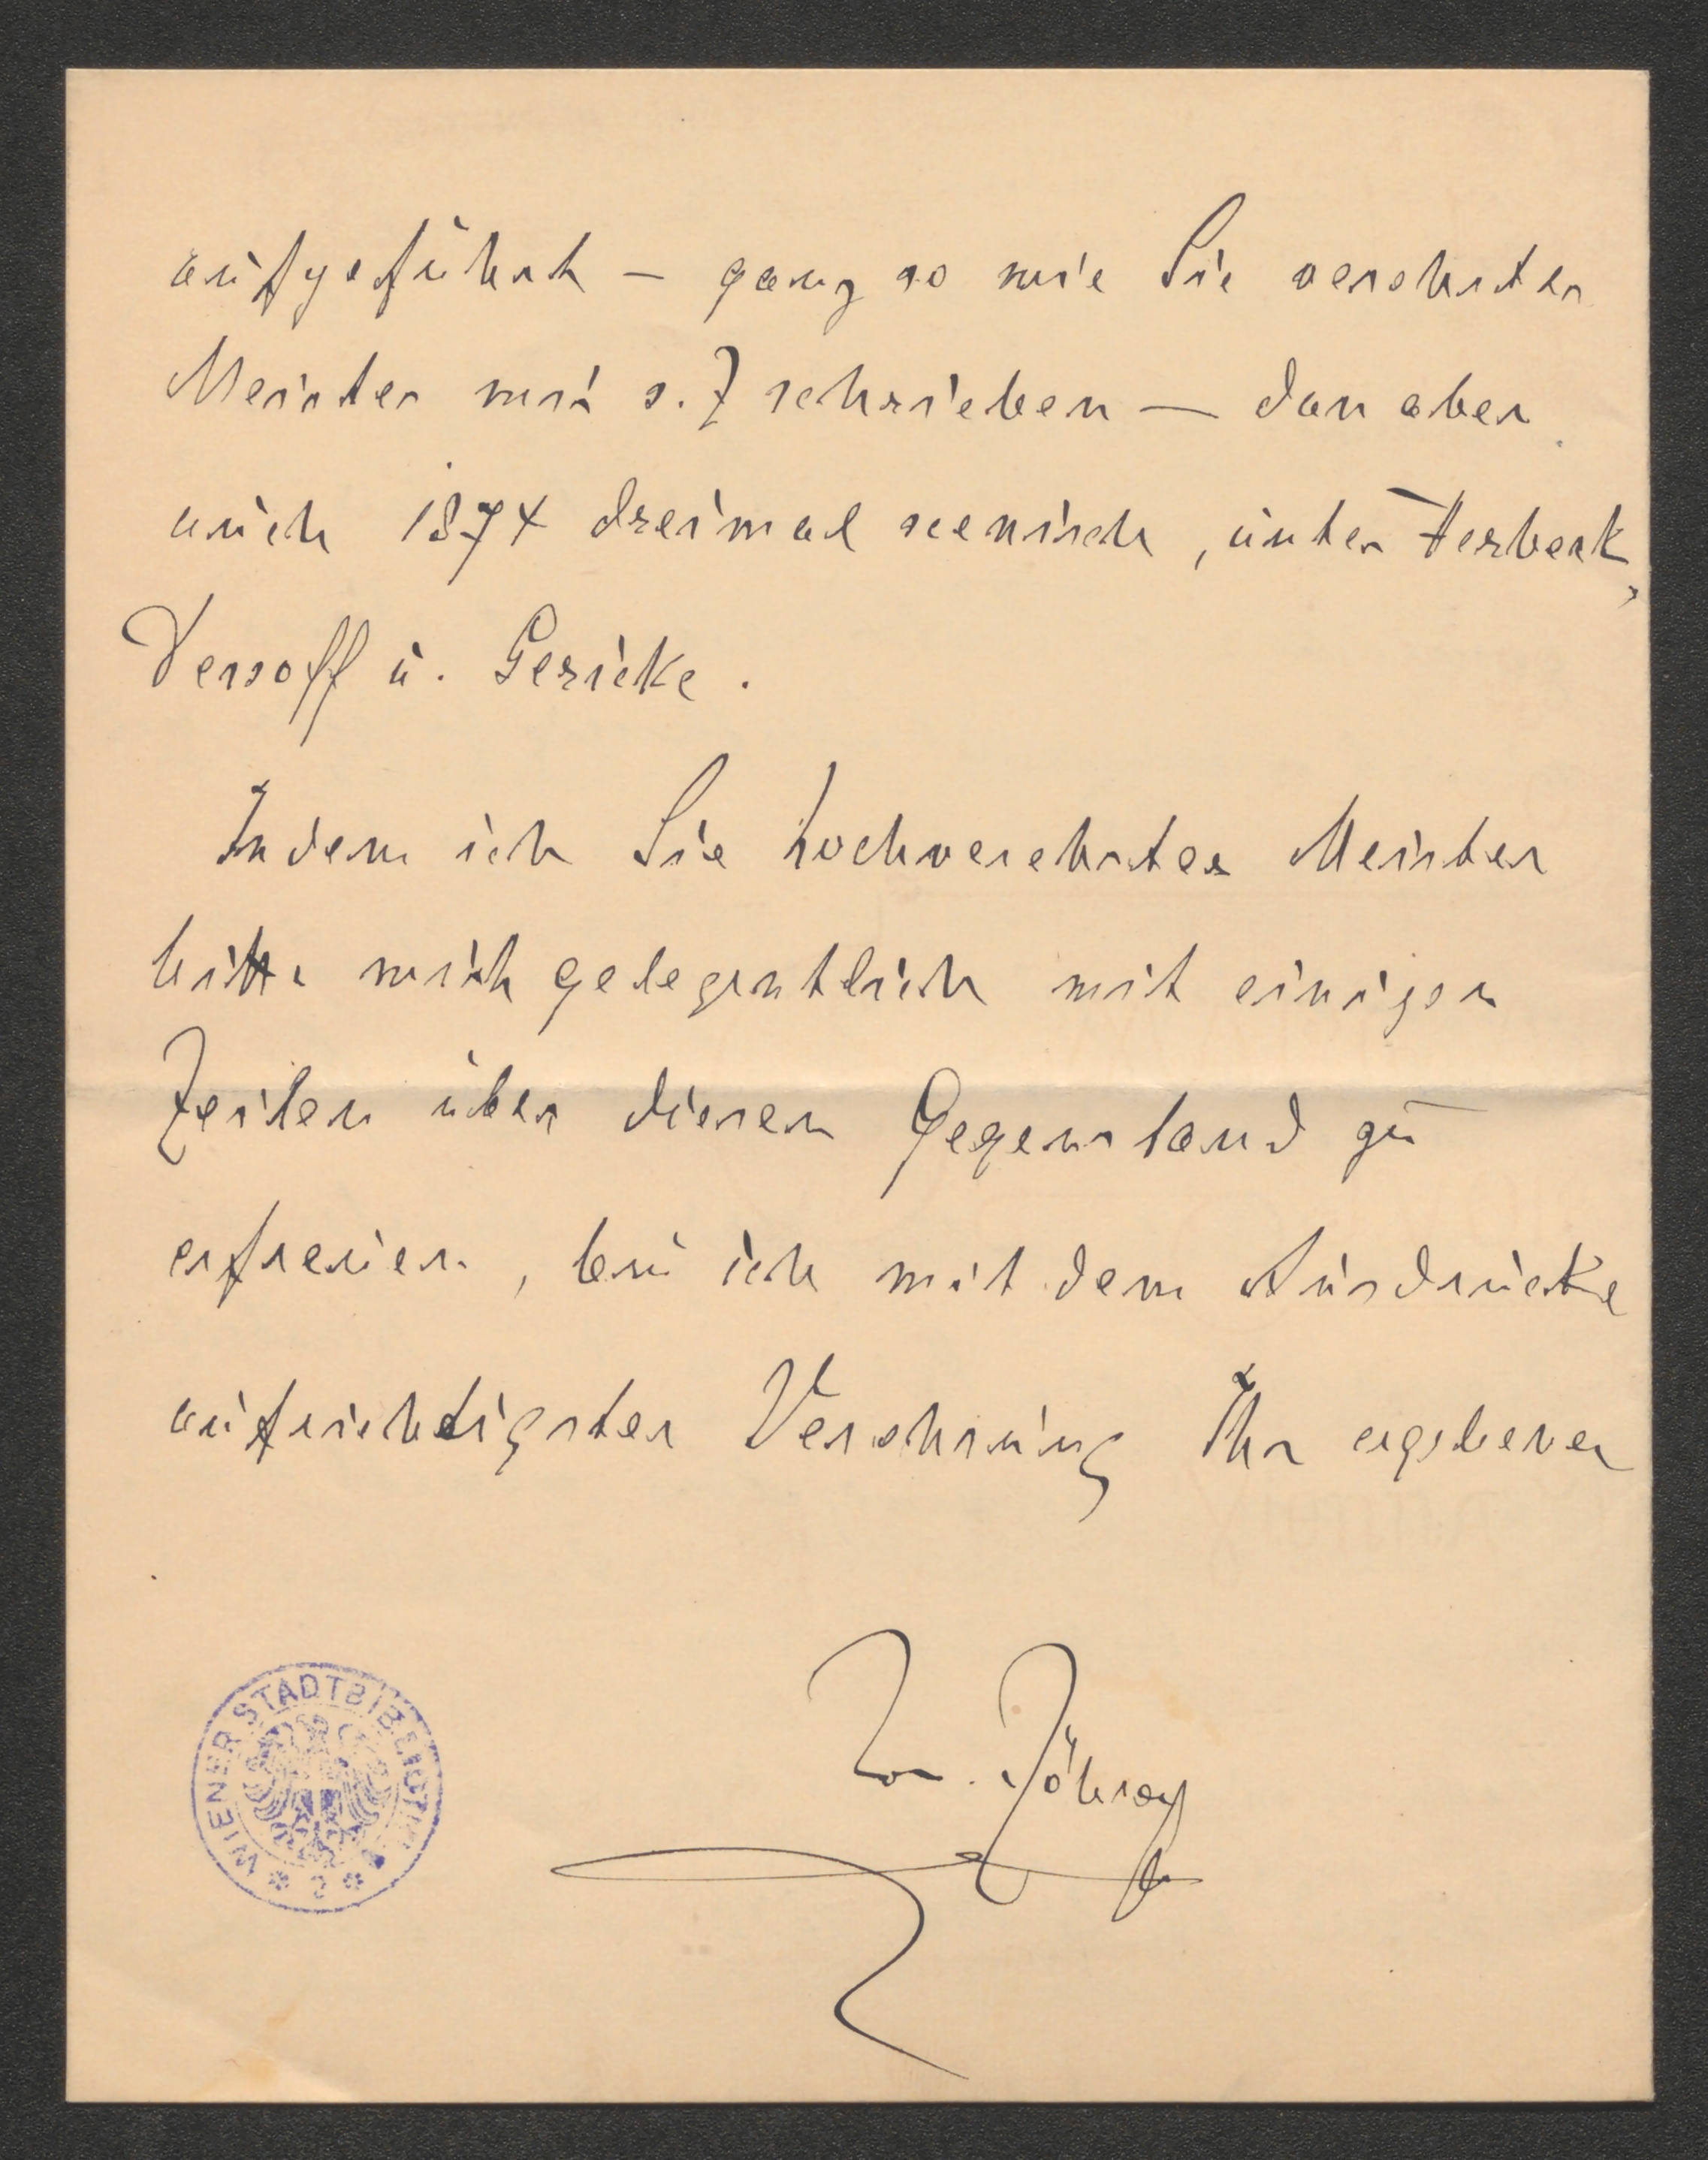 aufgeführt – ganz so wie Sie verehrter
Meister mir s. Z schrieben – dan aber
auch 1874 dreimal scenisch, unter Herbeck,
Dessoff u. Gericke.
Indem ich Sie hochverehrter Meister
bitte mich gelegentlich mit einigen
Zeilen über diesen Gegenstand zu
erfreuen, bin ich mit dem Ausdrucke
aufrichtigster Verehrung Ihr ergebener
WIENER STADTBIBLIOTHEK
2